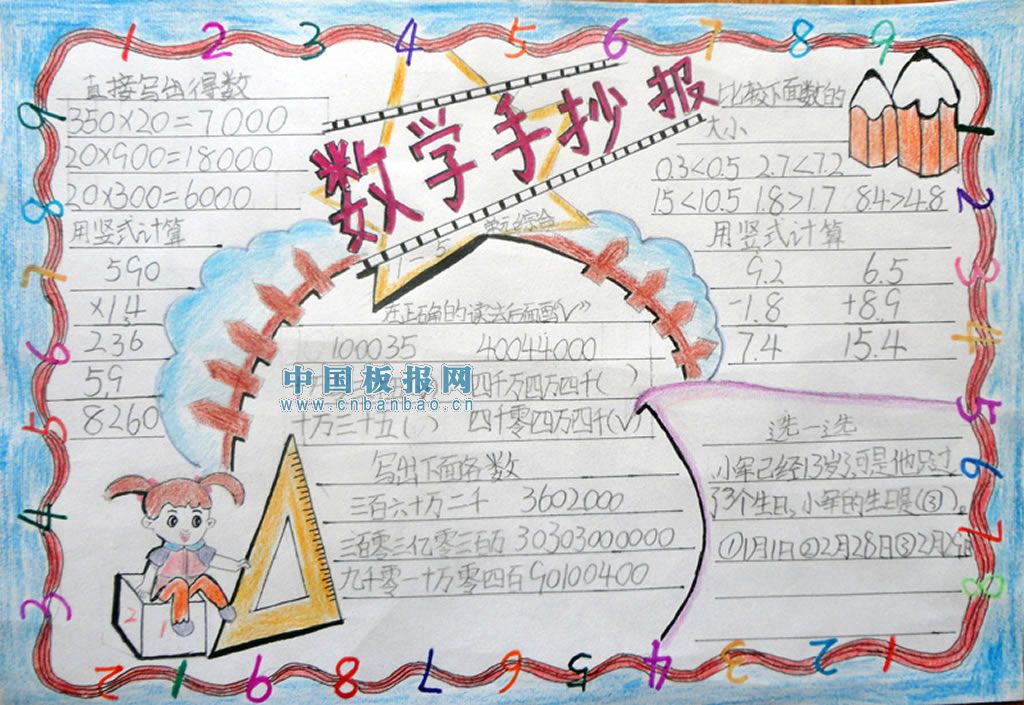 1 2 3 4 5 6 7 8 9
数学手抄报
1-5 单元综合
直接写出得数
350×20=7000
20×900=18000
20×300=6000
用竖式计算
590
×14
236
59
8260
比较下面数的
大小
0.3<0.5 2.7<7.2
1.5<10.5 1.8>1.7 8.4>4.8
用竖式计算
9.2 6.5
-1.8 +8.9
7.4 15.4
在正确的读法后面画"√"
100035 40044000
四千万四万四千( )
十万三十五( ) 四千零四万四千(√)
中国板报网
www.cnbanbao.cn
写出下面各数
三百六十万二千 3602000
三百零三亿零三百万 30303000000
九千零一十万零四百 90100400
选一选
小军已经13岁,可是他只过
了3个生日,小军的生日是(③)。
①1月1日②2月28日③2月29日
2 1
2 3 4 5 6 7 8
9 8 7 6 5 4 3
2 1 9 8 7 6 5 4 3 2 1